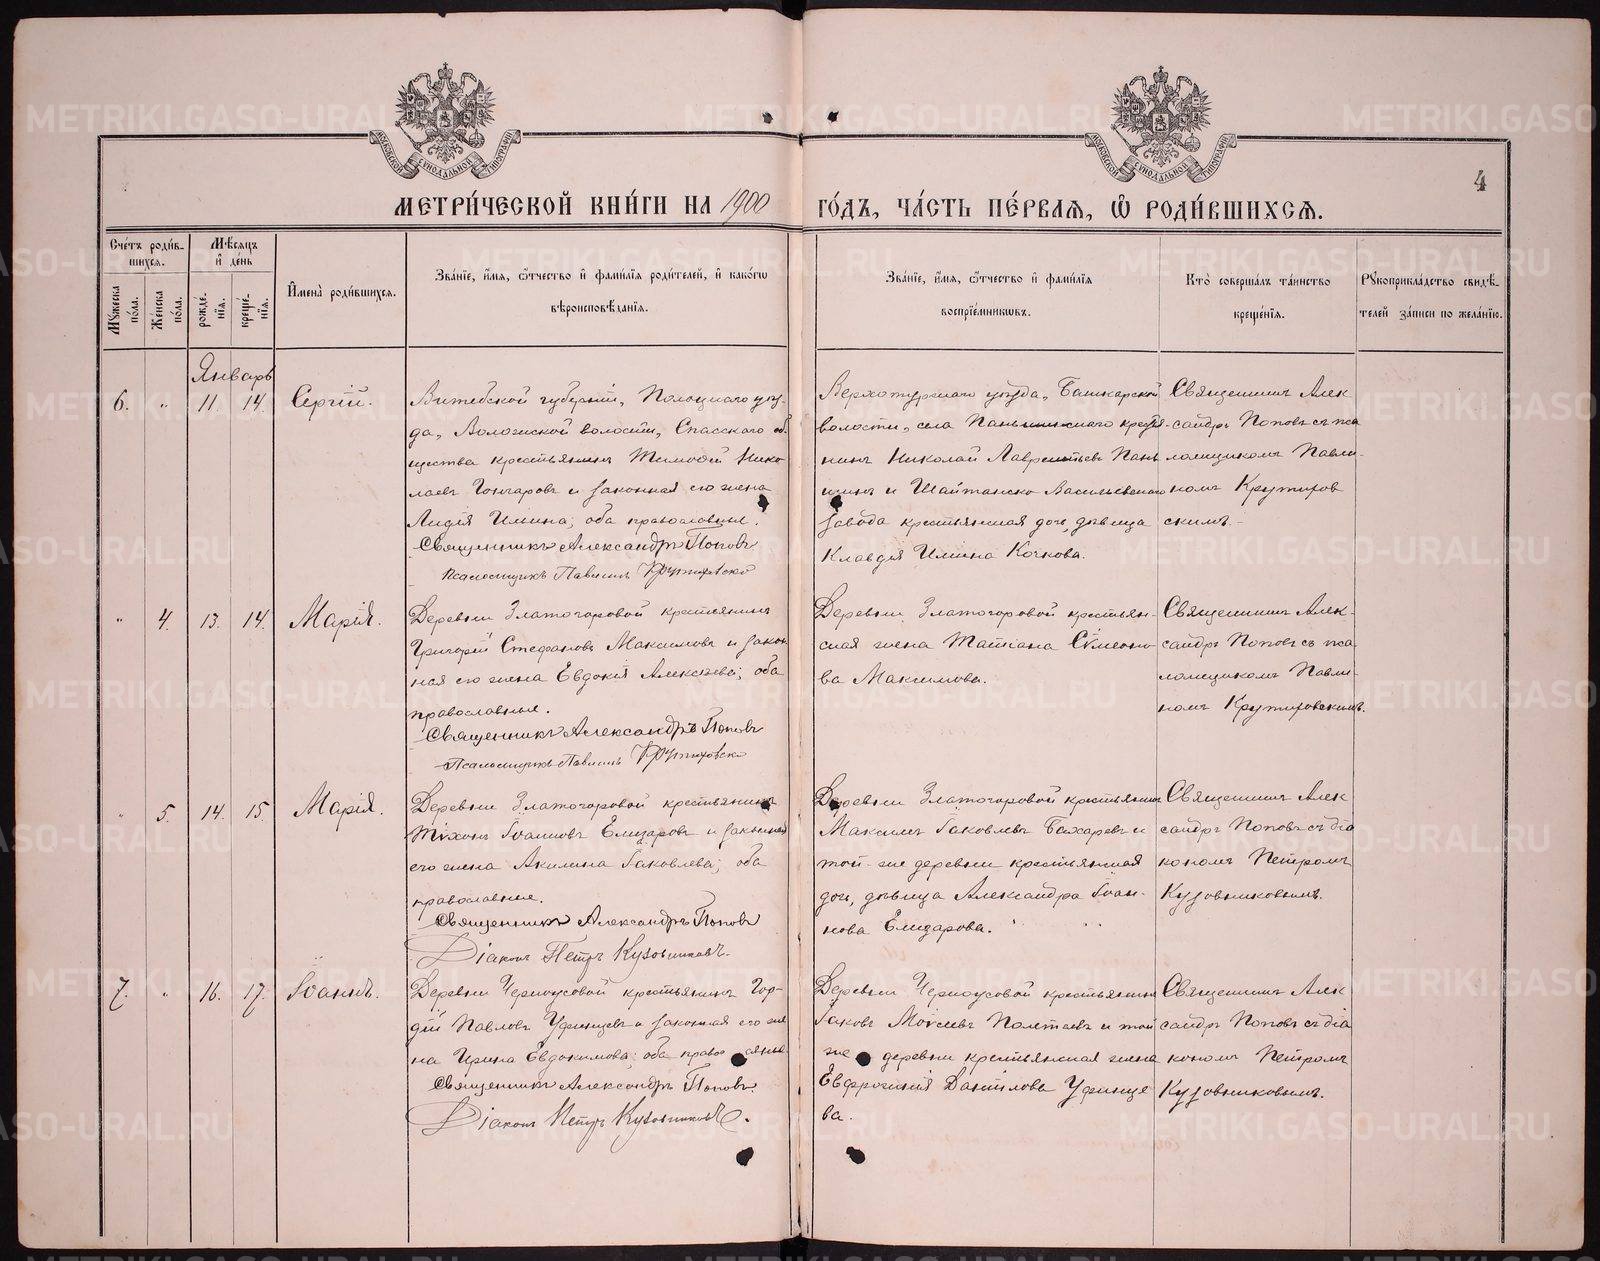 МЕТРИ́ЧЕСКОЙ КНИ́ГИ НА 1900 ГО́ДЪ, ЧА́СТЬ ПЕ́РВАѦ, Ѽ РОДИ́ВШИХСѦ.
4
Сче́тъ роди́вшихсѧ.
Мꙋжеска по́ла.
Же́нска по́ла.
Мѣ́сѧцъ и҆ де́нь
рожде́нїѧ.
креще́нїѧ.
И҆мена̀ роди́вшихсѧ.
Зва́нїе, и҆́мѧ, ѻ҆́тчество и҆ фами́лїѧ роди́телей, и҆ како́гѡ
вѣроисповѣ́данїѧ.
Зва́нїе, и҆́мѧ, ѻ҆́тчество и҆ фами́лїѧ
воспрїе́мникѡвъ.
Кто̀ соверша́лъ та́инство
креще́нїѧ.
Рꙋкоприкла́дство свидѣ́-
телей за́писи по жела́нїю.
Январь
6. " 11. 14. Сергій.
Витебской губерніи, Полоцкаго уѣз-
да, Воложской волости, Спасскаго об-
щества крестьянинъ Тимоѳей Нико-
лаевъ Гончаровъ и законная его жена
Лидія Ильина; оба православные.
Священникъ Александръ Поповъ
Псаломщикъ Павлинъ
Верхотурскаго уѣзда, Башкарской
волости, села крестья-
нинъ Николай Лаврентьевъ Пань-
шинъ и Шайтанско-Васильевскаго
завода крестьянская дочь, дѣвица
Клавдія Ильина Кочкова.
Священникъ Алек-
сандръ Поповъ съ пса-
ломщикомъ Павли-
номъ
скимъ.
" 4. 13. 14. Марія.
Деревни Златогоровой крестьянинъ
Григорій Стефановъ Максимовъ и закон-
ная его жена Евдокія Алексѣева; оба
православные.
Священникъ Александръ Поповъ
Псаломщикъ Павлинъ
Деревни Златогоровой крестьян-
ская жена Татіана Сѵмеоно-
ва Максимова.
Священникъ Алек-
сандръ Поповъ съ пса-
ломщикомъ Павли-
номъ
" 5. 14. 15. Марія.
Деревни Златогоровой крестьянинъ
Тихонъ Іоанновъ Елизаровъ и законная
его жена Акилина Іаковлева; оба
православные.
Священникъ Александръ Поповъ
Діаконъ Петръ Кузовниковъ.
Деревни Златогоровой крестьянинъ
Максимъ Іаковлевъ Бахаревъ и
той-же деревни крестьянская
дочь, дѣвица Александра Іоан-
нова Елизарова.
Священникъ Алек-
сандръ Поповъ съ діа-
кономъ Петромъ
Кузовниковымъ.
7. " 16. 17. Іоаннъ.
Деревни Черноусовой крестьянинъ Гор-
дій Павловъ Уфинцевъ и законная его же-
на Ирина Евдокимова; оба православные.
Священникъ Александръ Поповъ
Діаконъ Петръ Кузовниковъ.
Деревни Черноусовой крестьянинъ
Іаковъ Моѵсеевъ Полетаевъ и той
же деревни крестьянская жена
Евфросинія Данилова Уфинце-
ва.
Священникъ Алек-
сандръ Поповъ съ діа-
кономъ Петромъ
Кузовниковымъ.
METRIKI.GASO-URAL.RU